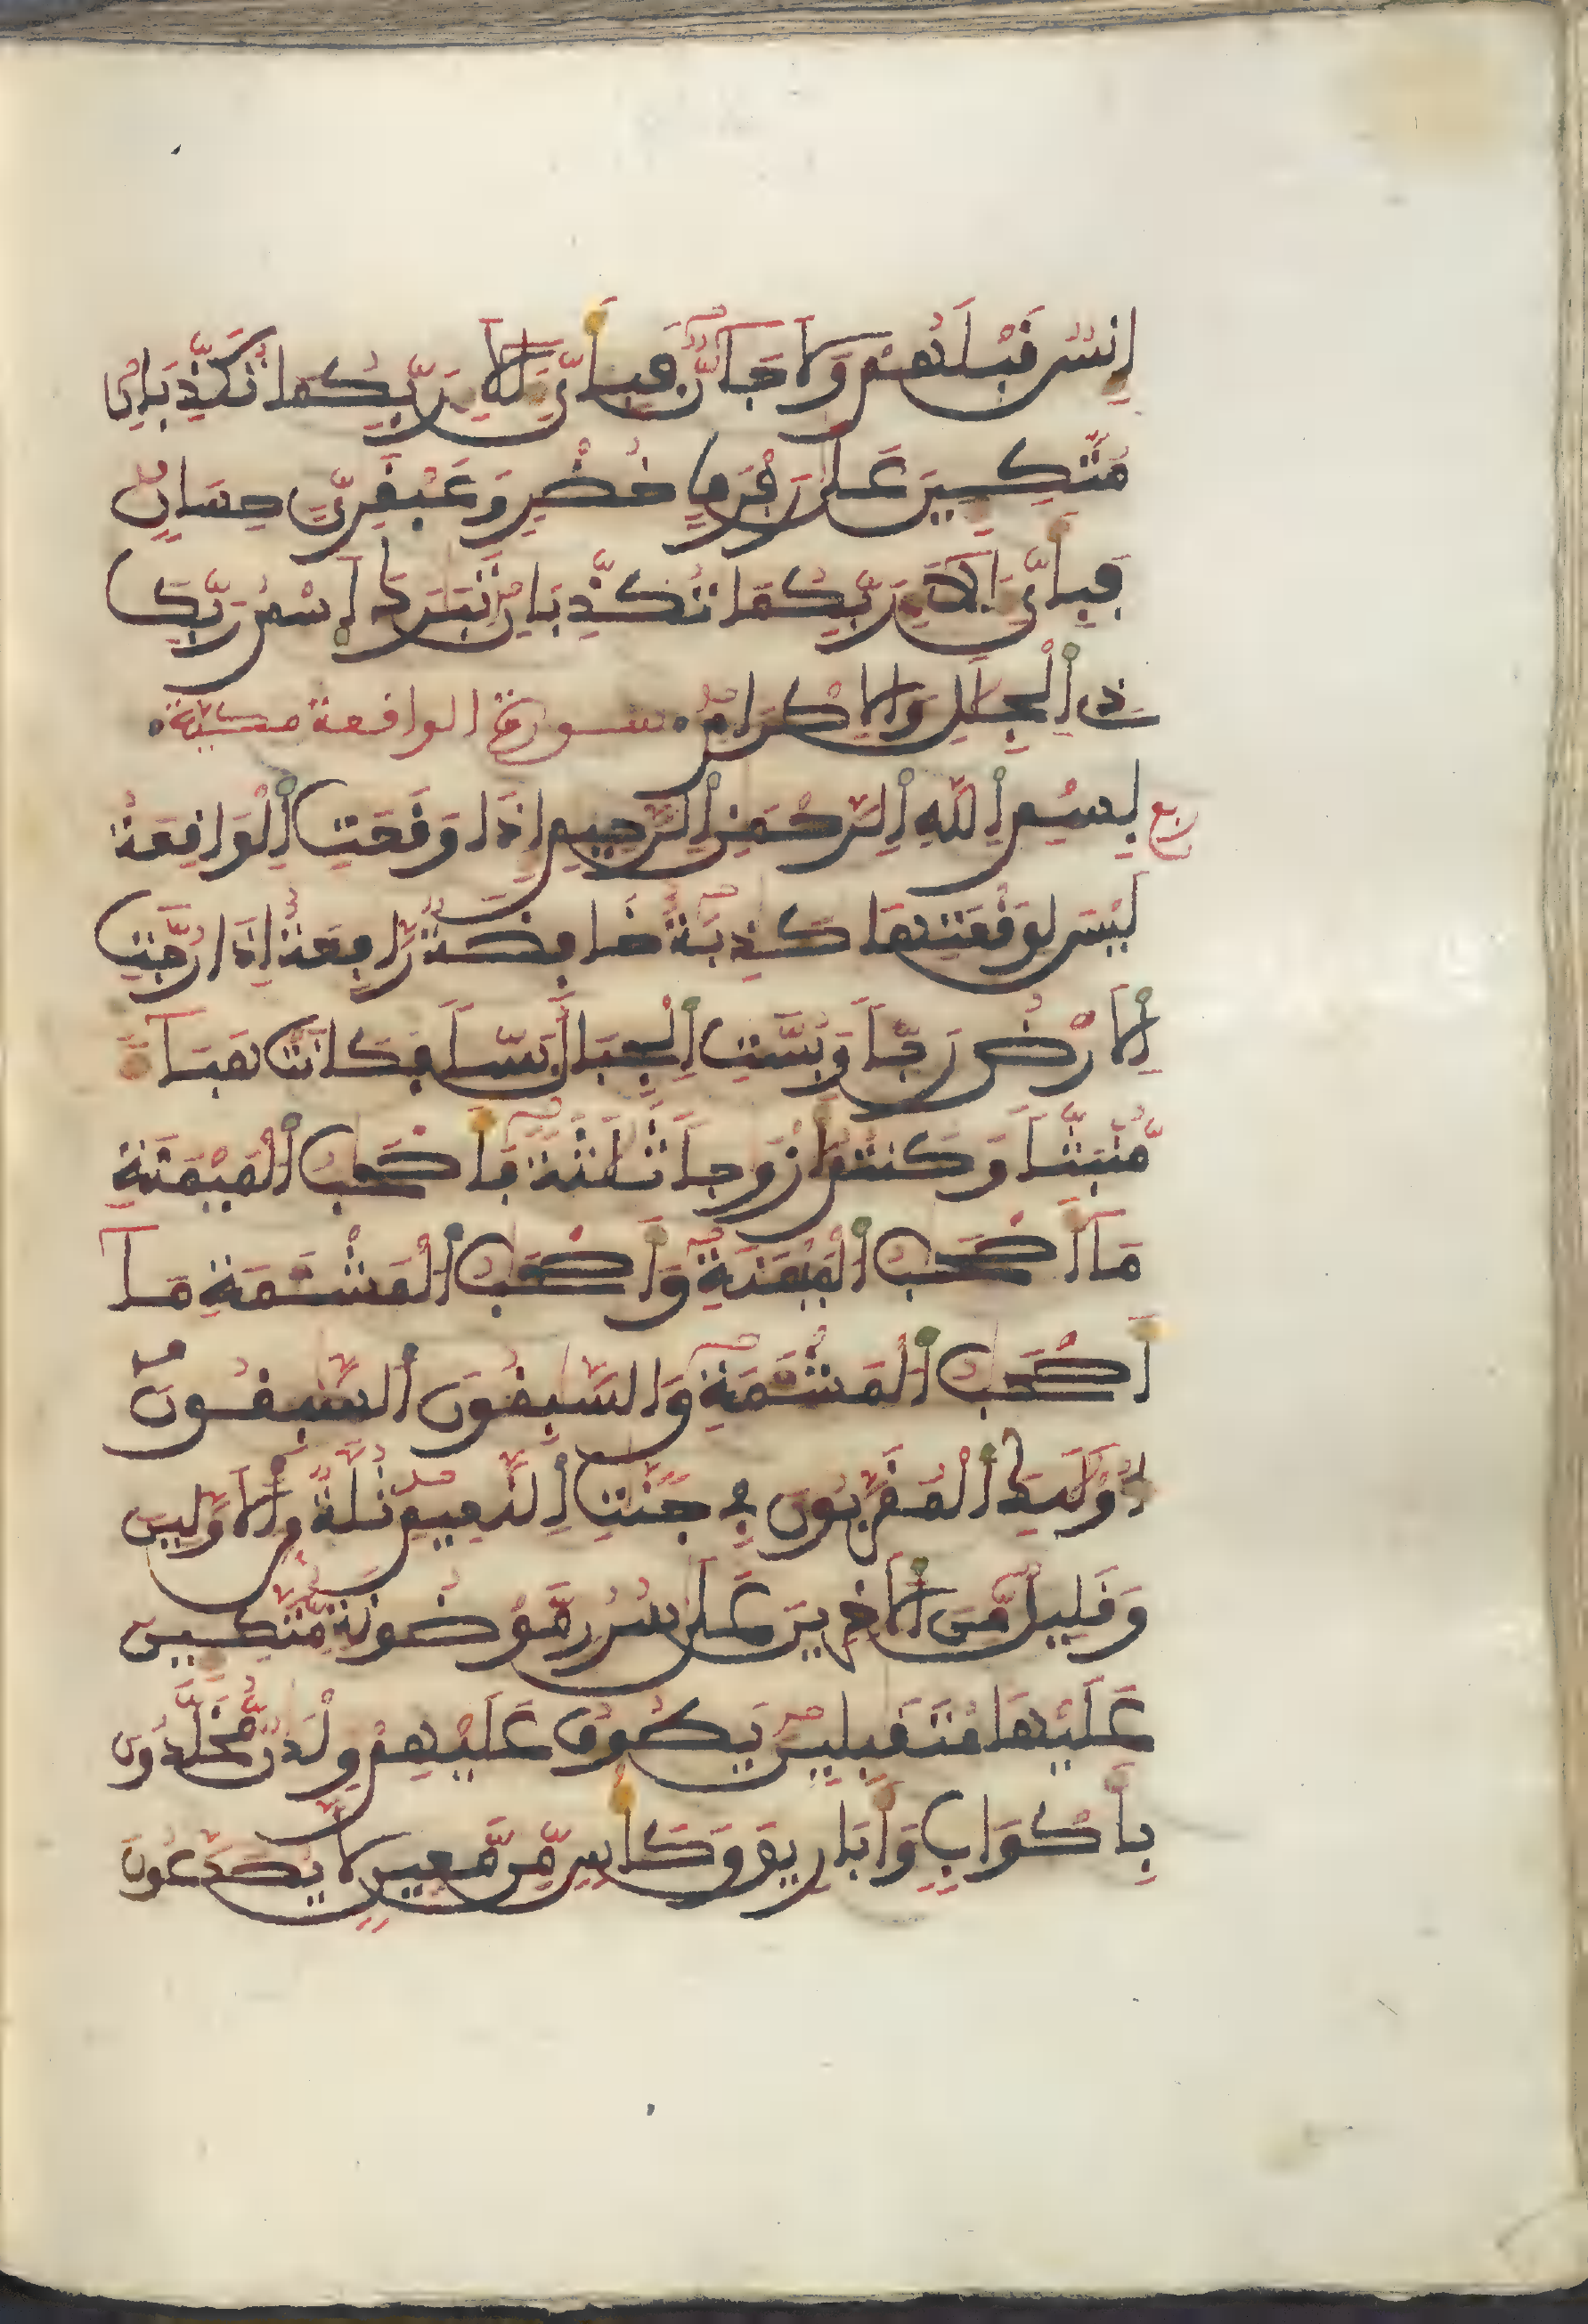 إِنسٌ قَبْلَهُمْ وَلَا جَآنٌّ فَبِأَيِّ ءَالَآءِ رَبِّكُمَا تُكَذِّبَانِ
مُتَّكِـِٔينَ عَلَىٰ رَفْرَفٍ خُضْرٍ وَعَبْقَرِيٍّ حِسَانٍ
فَبِأَيِّ ءَالَآءِ رَبِّكُمَا تُكَذِّبَانِ تَبَٰرَكَ اَسْمُ رَبِّكَ
ذِي اِلْجَلَٰلِ وَالْإِكْرَامِ سورة الواقعة مكية
ربع بِسْمِ اِللَّهِ اِلرَّحْمَٰنِ اِلرَّحِيمِ إِذَا وَقَعَتِ اِلْوَاقِعَةُ
لَيْسَ لِوَقْعَتِهَا كَٰذِبَةٌ خَافِضَةٌ رَّافِعَةٌ إِذَا رُجَّتِ
اِلْأَرْضُ رَجّاً وَبُسَّتِ اِلْجِبَالُ بَسّاً فَكَانَتْ هَبَآءً
مُّنۢبَثّاً وَكُنتُمْ أَزْوَٰجاً ثَلَٰثَةً فَأَصْحَٰبُ اُلْمَيْمَنَةِ
مَآ أَصْحَٰبُ اُلْمَيْمَنَةِ وَأَصْحَٰبُ اُلْمَشْـَٔمَةِ مَآ
أَصْحَٰبُ اُلْمَشْـَٔمَةِ وَالسَّٰبِقُونَ اَلسَّٰبِقُونَ
أُوْلَٰٓئِكَ اَلْمُقَرَّبُونَ فِي جَنَّٰتِ اِلنَّعِيمِ ثُلَّةٌ مِّنَ اَلْأَوَّلِينَ
وَقَلِيلٌ مِّنَ اَلْأٓخِرِينَ عَلَىٰ سُرُرٍ مَّوْضُونَةٍ مُّتَّكِـِٔينَ
عَلَيْهَا مُتَقَٰبِلِينَ يَطُوفُ عَلَيْهِمْ وِلْدَٰنٌ مُّخَلَّدُونَ
بِأَكْوَابٍ وَأَبَارِيقَ وَكَأْسٍ مِّن مَّعِينٍ لَّا يُصَدَّعُونَ